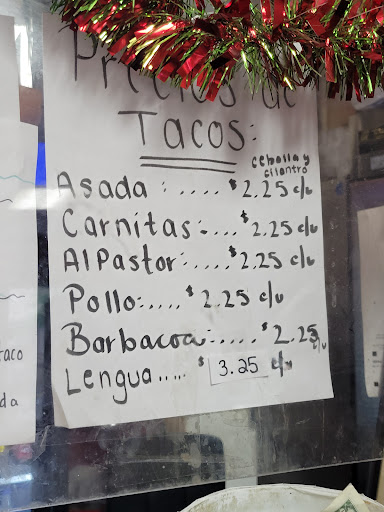 Precios de
Tacos:
cebolla y
cilantro
Asada : .... $2.25 c/u
Carnitas: .... $2.25 c/u
Al Pastor: .... $2.25 c/u
Pollo: .... $2.25 c/u
Barbacoa: .... $2.25 c/u
Lengua ..... $3.25 c/u
taco
da